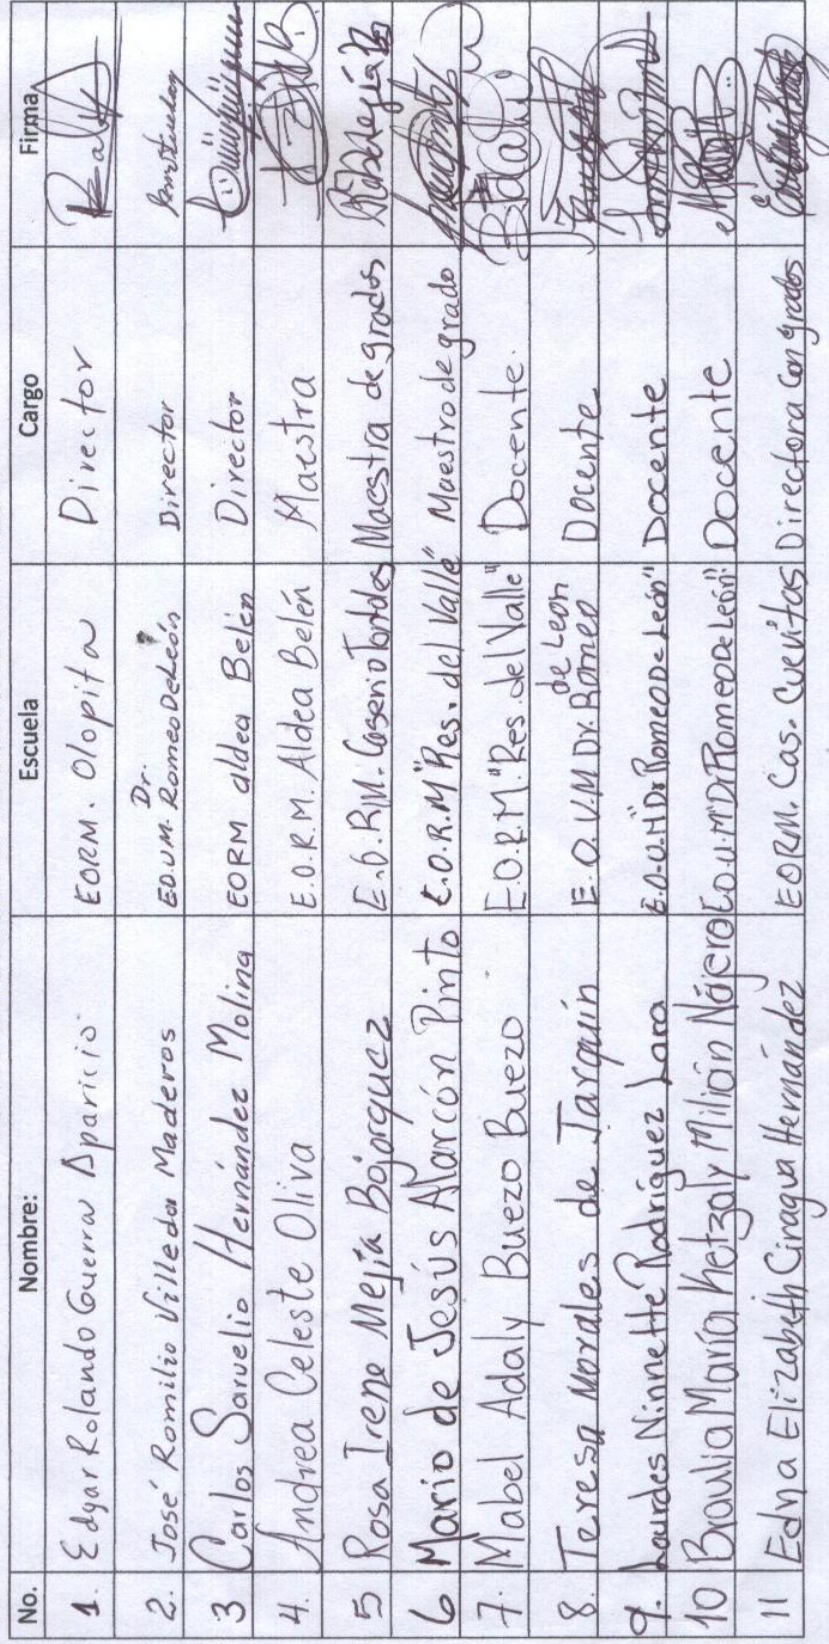 No. Nombre: Escuela Cargo Firma
1. Edgar Rolando Guerra Aparicio EORM. Olopita Director
2. José Romilio Villeda Maderos E.O.U.M. Dr. Romeo De León Director
3 Carlos Saruelio Hernández Molina EORM aldea Belén Director
4. Andrea Celeste Oliva E.O.R.M. Aldea Belén Maestra
5 Rosa Irene Mejía Bojorquez E.O.R.M. Caserio Maestra de grados
6 Mario de Jesús Alarcón Pinto E.O.R.M "Res. del Valle" Maestro de grado
7. Mabel Adaly Buezo Buezo E.O.R.M. "Res. del Valle" Docente.
8. Teresa Morales de Jarquín E.O.U.M Dr. Romeo de León Docente
9. Lourdes Ninnette Rodríguez Lara E.O.U.M "Dr Romeo De León" Docente
10 Braulia María Ketzaly Milián Nájera E.O.U.M "Dr Romeo De León" Docente
11 Edna Elizabeth Ciragua Hernández EORM. Cas. Cuevitas Directora Con grados